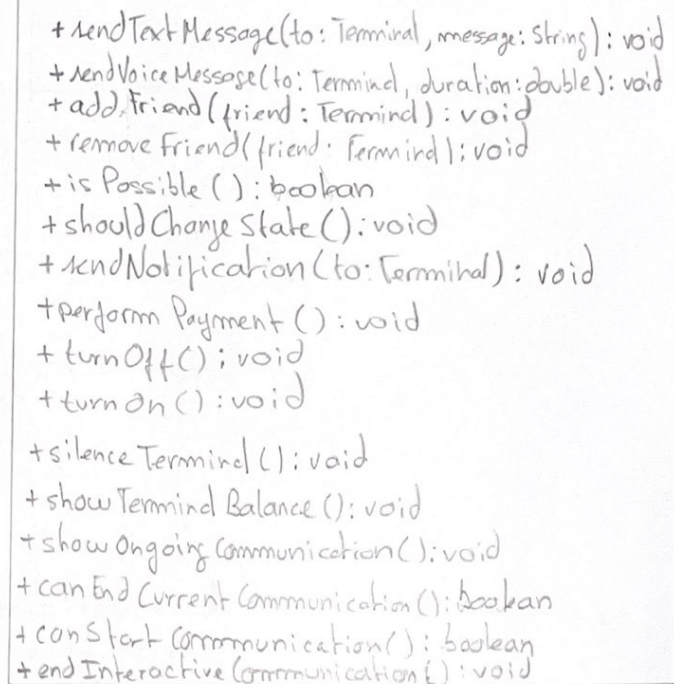 + sendTextMessage(to: Terminal, message: String): void
+ sendVoiceMessage(to: Terminal, duration: double): void
+ addFriend(friend: Terminal): void
+ removeFriend(friend: Terminal): void
+ isPossible(): boolean
+ shouldChangeState(): void
+ sendNotification(to: Terminal): void
+ performPayment(): void
+ turnOff(): void
+ turnOn(): void
+ silenceTerminal(): void
+ showTerminalBalance(): void
+ showOngoingCommunication(): void
+ canEndCurrentCommunication(): boolean
+ canStartCommunication(): boolean
+ endInteractiveCommunication(): void